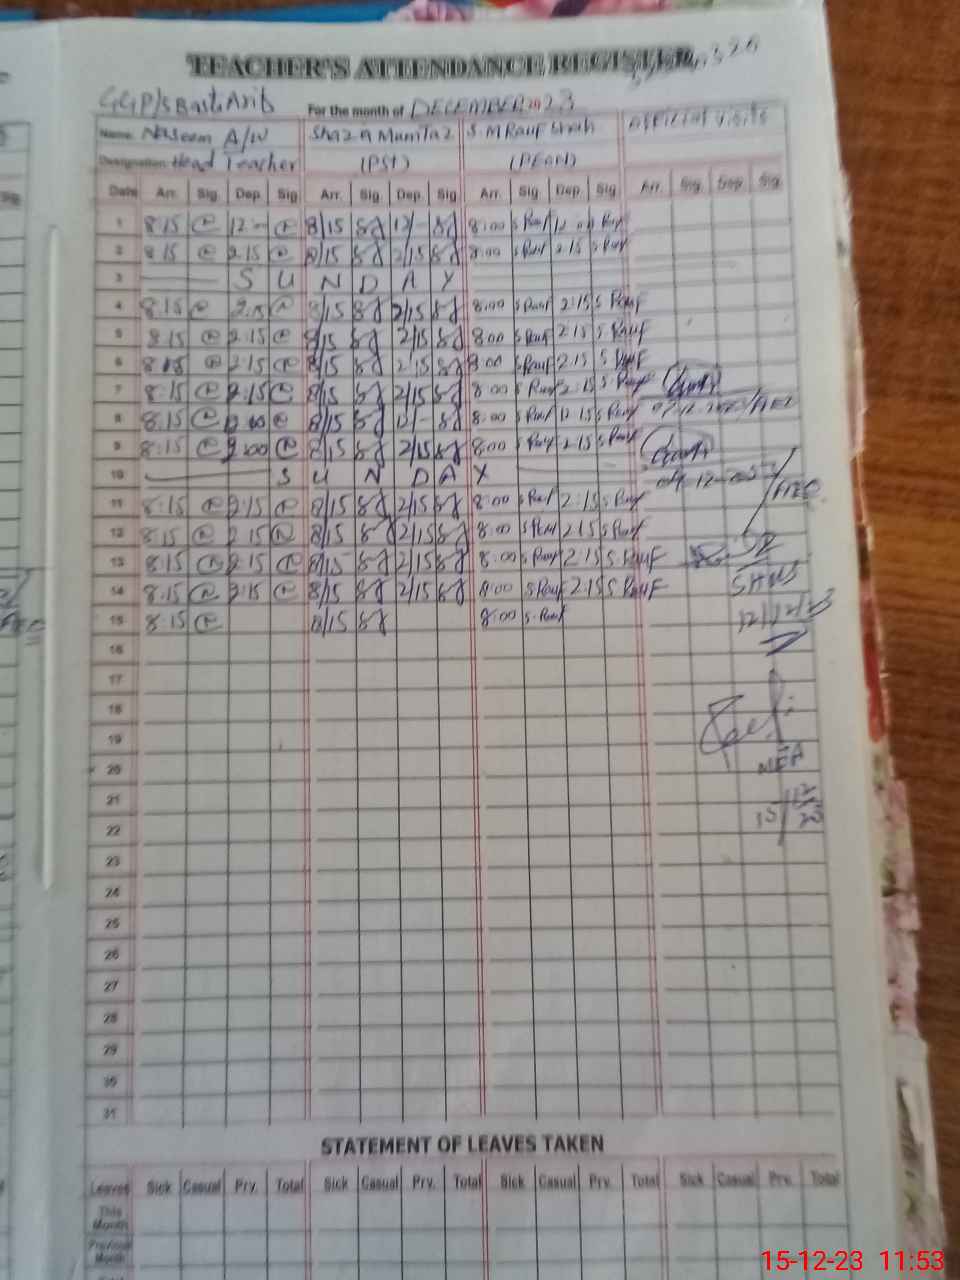 TEACHER'S ATTENDANCE REGISTER
For the month of DECEMBER 2023
Name: Naseem A/W Shaza Mumtaz S.M Rauf Shah official visits
Designation: Head Teacher (PST) (PEON)
Date Arr. Sig. Dep. Sig Arr. Sig Dep. Sig Arr. Sig Dep. Sig Arr. Sig. Dep Sig
1 8:15 12 8/15 12/- 8:00 S Rauf 12 00 S Rauf
2 8:15 2:15 8/15 2/15 8:00 S Rauf 2:15 S Rauf
3 S U N D A Y
4 8:15 2:15 8/15 2/15 8:00 S Rauf 2:15 S Rauf
5 8:15 2:15 8/15 2/15 8:00 S Rauf 2:15 S Rauf
6 8:15 2:15 8/15 2/15 8:00 S Rauf 2:15 S Rauf
7 8:15 2:15 8/15 2/15 8:00 S Rauf 2:15 S Rauf
8 8:15 12:00 8/15 12/- 8:00 S Rauf 12 15 S Rauf
9 8:15 2:00 8/15 2/15 8:00 S Rauf 2:15 S Rauf
10 S U N D A Y
11 8:15 2:15 8/15 2/15 8:00 S Rauf 2:15 S Rauf
12 8:15 2:15 8/15 2/15 8:00 S Rauf 2:15 S Rauf
13 8:15 2:15 8/15 2/15 8:00 S Rauf 2:15 S RAUF
14 8:15 2:15 8/15 2/15 8:00 S Rauf 2:15 S RAUF
15 8:15 8/15 8:00 S. Rauf
12/12/23
16
17
18
19
20
MEA
21
15/12/23
22
23
24
25
26
27
28
29
30
31
STATEMENT OF LEAVES TAKEN
Leaves Sick Casual Prv. Total Sick Casual Prv. Total Sick Casual Prv. Total Sick Casual Prv. Total
This Month
Previous Month
15-12-23 11:53